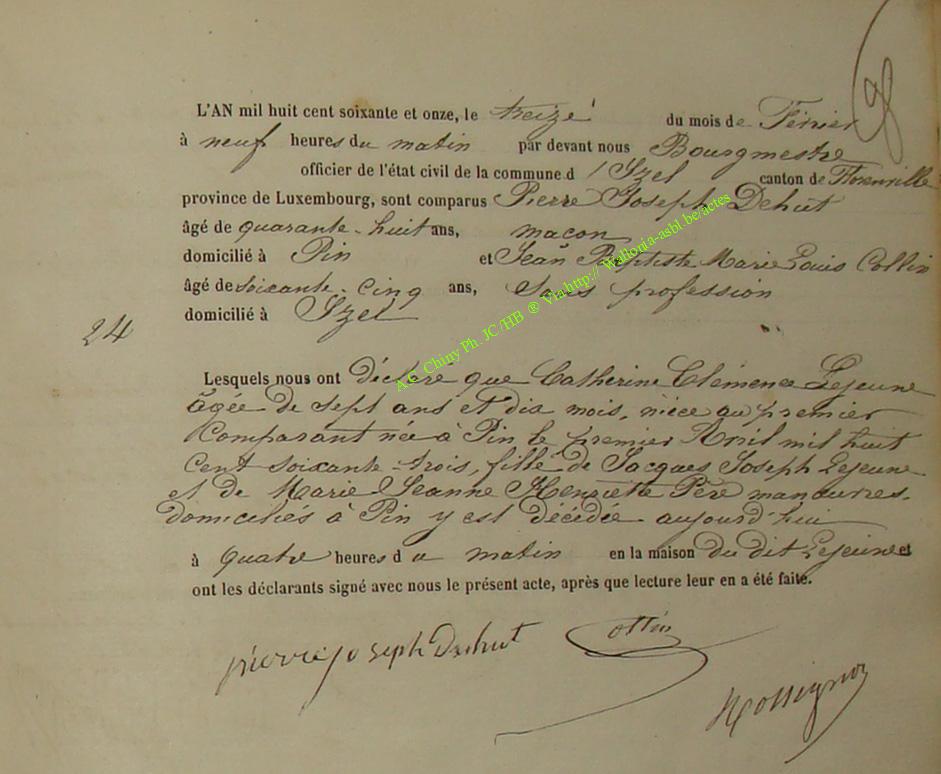 L'AN mil huit cent soixante et onze, le treize du mois de Février
à neuf heures du matin par devant nous Bourgmestre
officier de l'état civil de la commune d'Izel canton de Florenville
province de Luxembourg, sont comparus Pierre Joseph Dehut
âgé de quarante-huit ans, macon
domicilié à Pin et Jean Baptiste Marie Louis Collin
âgé de soixante-cinq ans, sans profession
domicilié à Izel
24
Lesquels nous ont déclaré que Catherine Clémence Lejeune
âgée de sept ans et dix mois, nièce au premier
Comparant née à Pin le premier Avril mil huit
Cent soixante-trois, fille de Jacques Joseph Lejeune
et de Marie Jeanne Henriette Père manœuvres
domiciliés à Pin y est décédée aujourd'hui
à quatre heures du matin en la maison du dit Lejeune et
ont les déclarants signé avec nous le présent acte, après que lecture leur en a été faite.
pierre joseph Dehut Collin
Rossignon
A.C. Chiny Ph. JC/HB ® Via http://Wallonia-asbl.be/actes